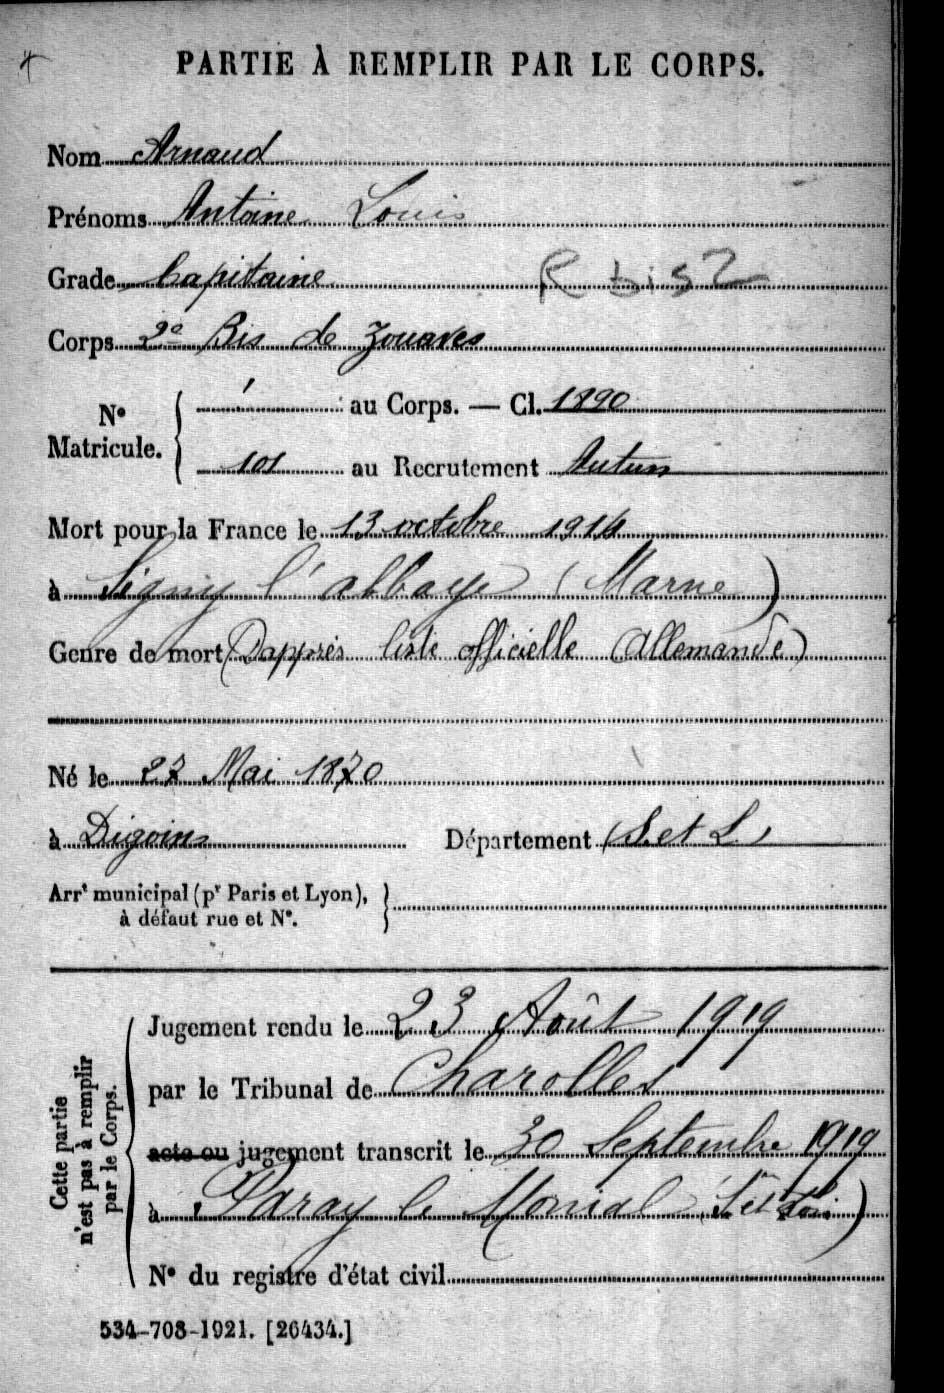 PARTIE À REMPLIR PAR LE CORPS.
Nom Arnaud
Prénoms Antoine Louis
Grade Capitaine R bis 2
Corps 2e Bis de Zouaves
N° Matricule.
au Corps. — Cl. 1890
101 au Recrutement Autun
Mort pour la France le 13 octobre 1914
à Signy l'abbaye (Marne)
Genre de mort (D'après liste officielle Allemande)
Né le 27 Mai 1870
à Digoin Département (S. et L.)
Arrt municipal (pr Paris et Lyon),
à défaut rue et N°.
Cette partie
n'est pas à remplir
par le Corps.
Jugement rendu le 23 Août 1919
par le Tribunal de Charolles
acte ou jugement transcrit le 30 Septembre 1919
à Paray le Monial (S et Loi.)
N° du registre d'état civil
534-708-1921. [26434.]